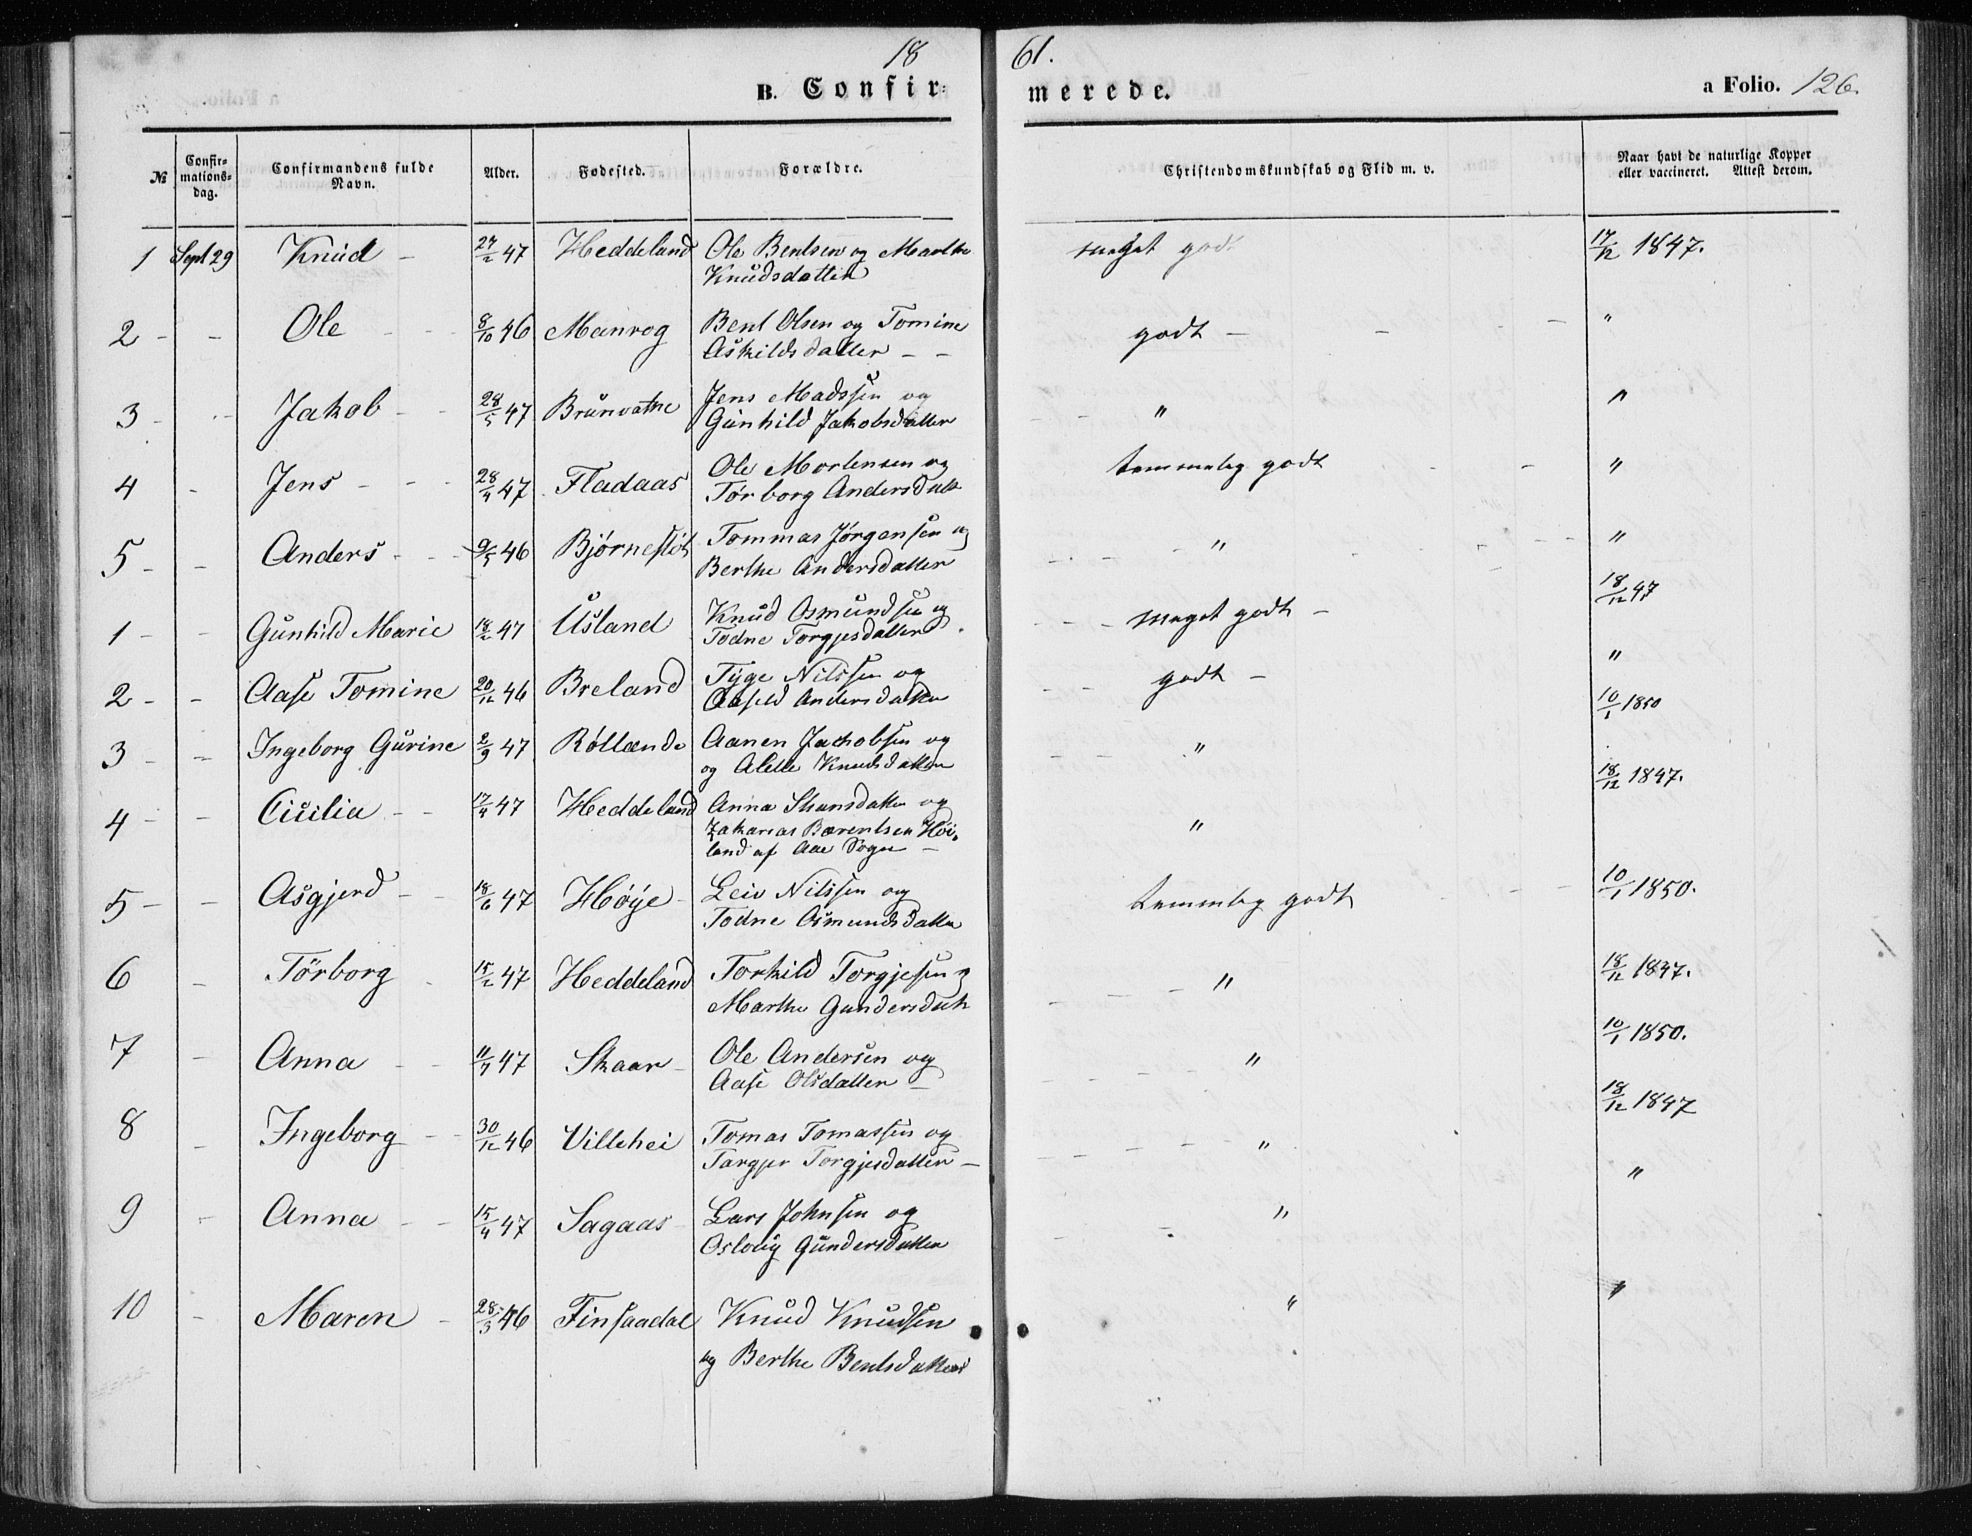 18 61.
B. Confir= merede. a Folio. 126.
№ Confir=mations=dag. Confirmandens fulde Navn. Alder. Fødested. Forældre. Christendomskundskab og Flid m. v. Naar havt de naturlige Kopper eller vaccineret. Attest derom.
1 Sept 29 Knud - 27/2 47 Heddeland Ole Bentsen og Marthe meget godt 17/12 1847.
Knudsdatter
2 - - Ole - - 8/10 46 Manrog Bent Olsen og Tomine godt - - - "
Askildsdatter - -
3 - - Jakob - 28/5 47 Brunvatne Jens Madssen og " "
Gunhild Jakobsdatter
4 - Jens - - - 28/4 47 Fladaas Ole Mortensen og temmelig godt - - "
Torborg Andersdatt
5 - - Anders - - 9/5 46 Bjørnestøl Tommas Jørgensen og " "
Berthe Andersdatter
1 - - Gunhild Marie 18/2 47 Usland Knud Osmundsen og meget godt - 18/12 47
Todne Torgjesdatter
2 - - Aase Tomine 20/12 46 Breland Tyge Nilssen og godt - "
Aasild Andersdatter
3 - - Ingeborg Gurine 2/9 47 Røllænde Aanen Jakobsen og " 10/1 1850
og Alelle Knudsdatter
4 - - Cicilia - - 17/4 47 Heddeland Anna Skansdatter og " 18/12 1847.
Zakarias Bærentsen Høi=
land af Aae Sogn -
5 - - Asgjerd - - 18/6 47 Høye - Leiv Nilssen og temmelig godt - - 10/1 1850.
Todne Osmundsdatter
6 - Törborg - 15/2 47 Heddeland Torkild Torgjesen og " 18/12 1847.
Marthe Gundersdatt
7 - Anna - - 11/4 47 Skaar - Ole Andersen og " 10/1 1850.
Aase Olsdatter -
8 - Ingeborg - - 30/12 46 Villehei Tomas Tomassen og " 18/12 1847
Targjer Torgjesdatter -
9 - Anna - - 15/4 47 Sagaas Lars Johnsen og " "
Oslaug Gundersdatter
10 - Maren - 28/3 46 Finsaadal Knud Knudsen " "
og Berthe Bentsdatter